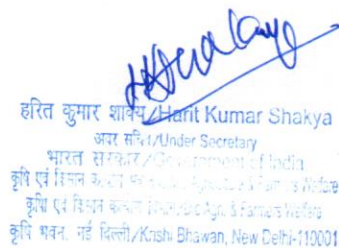 हरित कुमार शाक्य/Harit Kumar Shakya
अवर सचिव/Under Secretary
भारत सरकार/Government of India
कृषि एवं किसान कल्याण & Farmers Welfare
कृषि एवं किसान कल्याण Agri. & Farmers Welfare
कृषि भवन, नई दिल्ली/Krishi Bhawan, New Delhi-110001